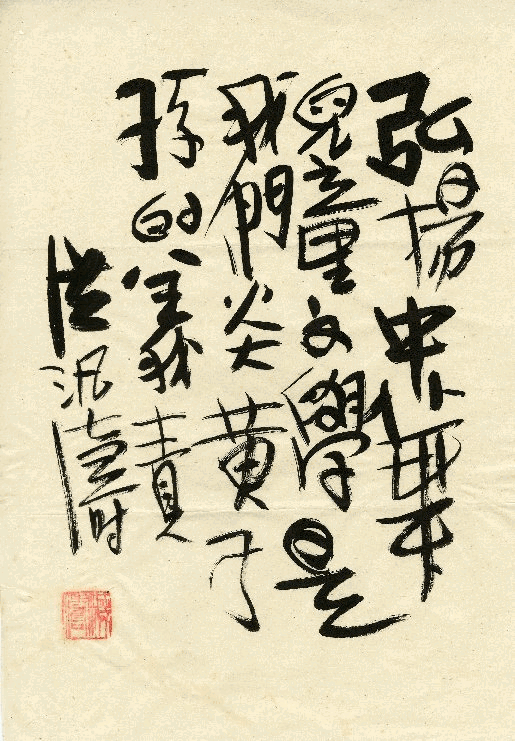 弘揚中華
兒童文學是
我們炎黃子
孫的義責
洪汛濤